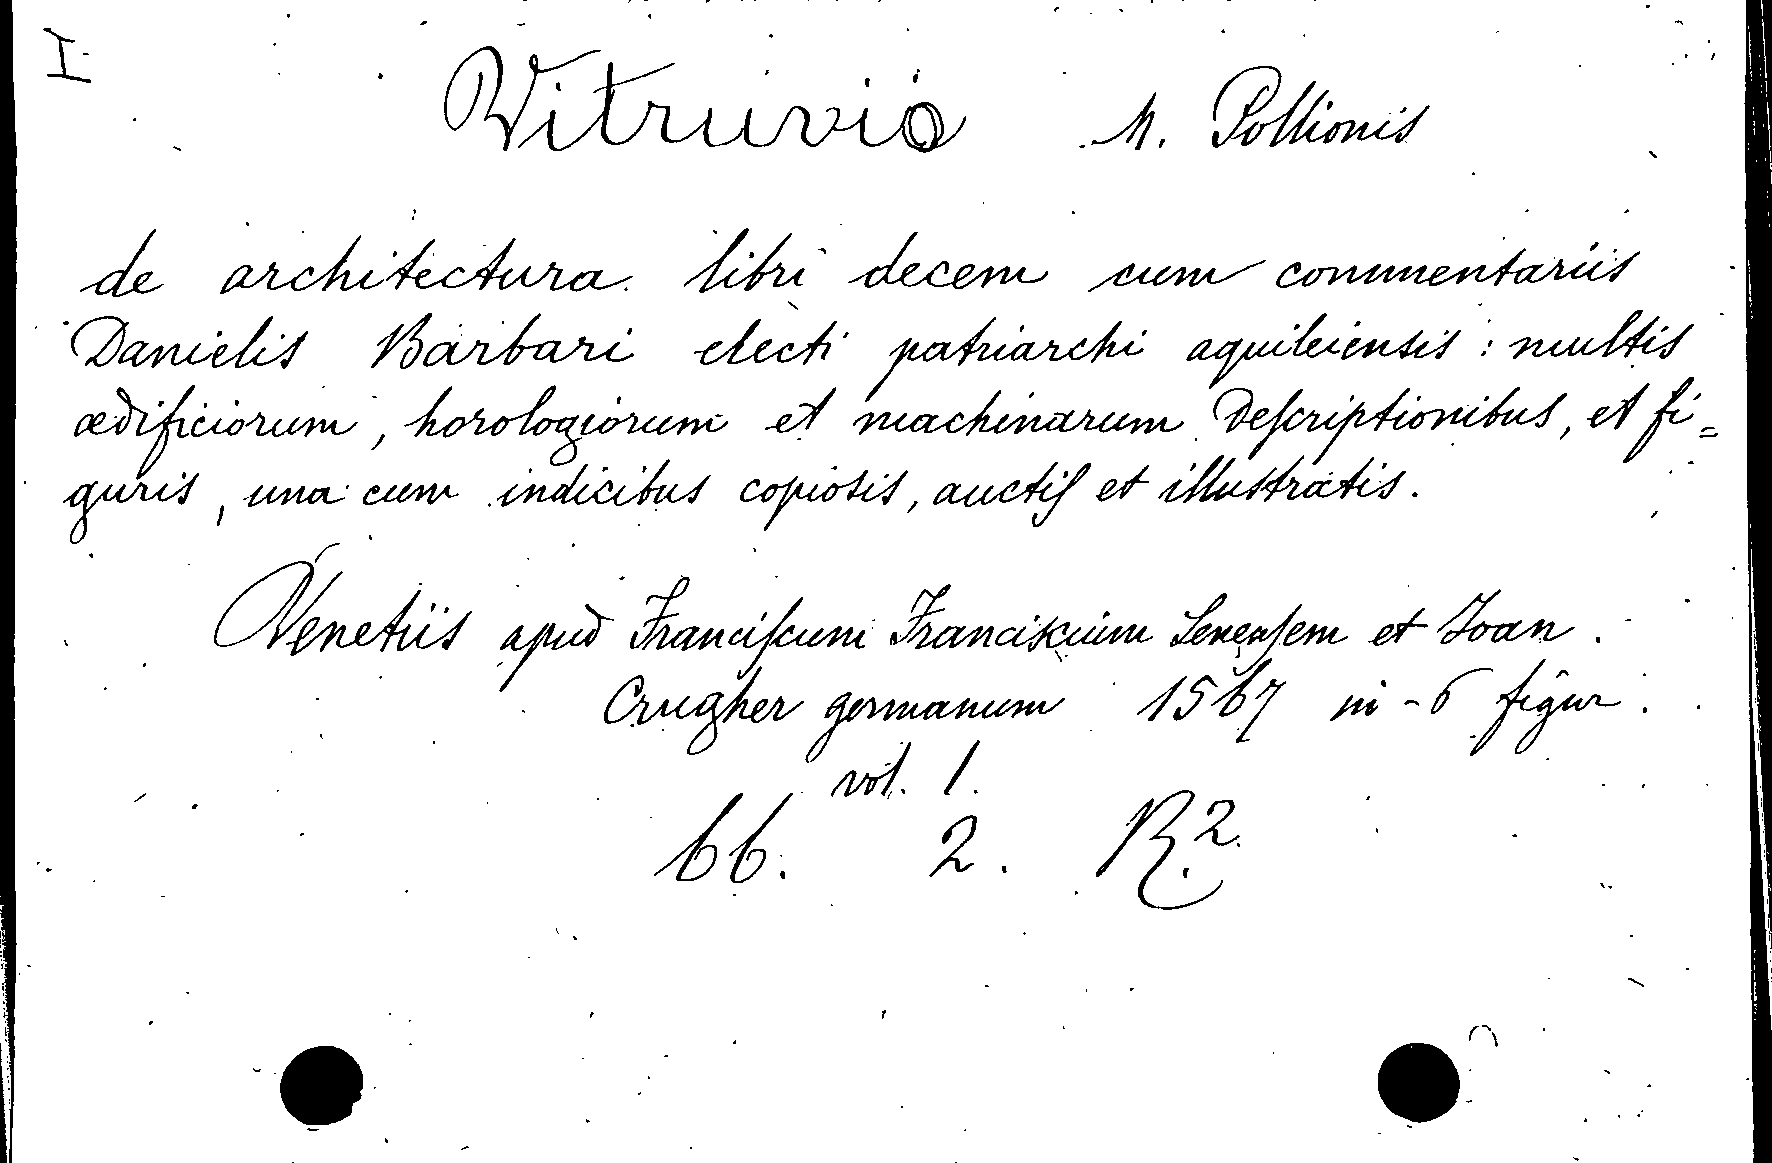 I
Vitruvio M. Pollionis
de architectura libri decem cum commentariis
Danielis Barbari electi patriarchi aquileiensis : multis
ædificiorum, horologiorum et machinarum deſcriptionibus, et fi=
guris, una cum indicibus copiosis, auctiſ et illustratis.
Venetiis apud Franciſcum Franciskium Senenſem et Ioan.
Crugher germanum 1567 in-6 figur.
vol. 1.
66. 2. R.2.